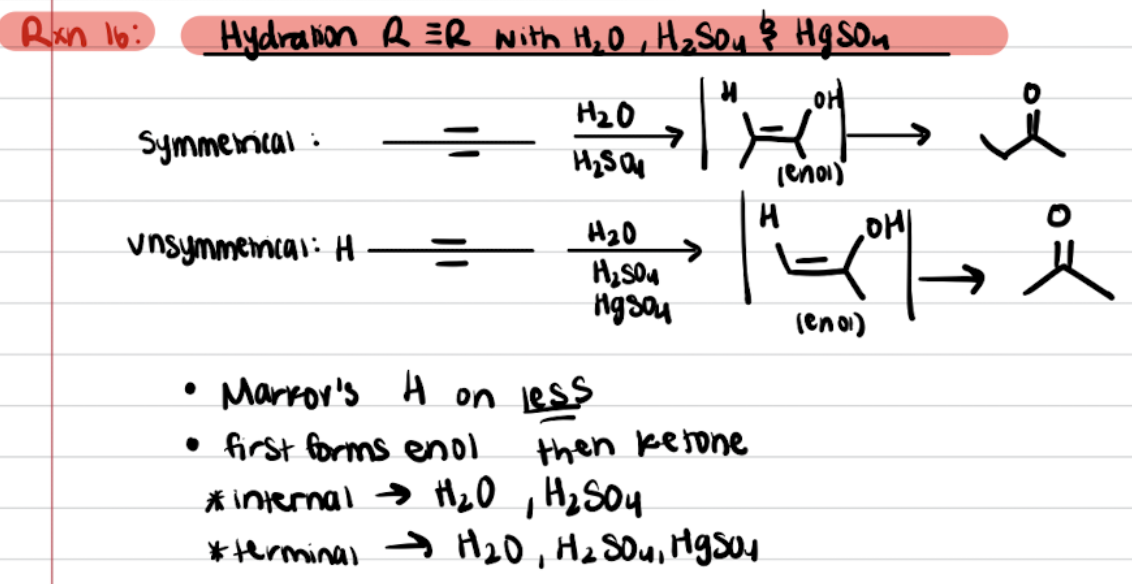 Rxn 16: Hydration R ≡R with H₂O, H₂SO₄ & HgSO₄
Symmetrical :
H₂O
H₂SO₄
H
OH
(enol)
O
Unsymmetrical: H
H₂O
H₂SO₄
HgSO₄
H
OH
(enol)
O
• Markov's H on less
• first forms enol then ketone
* internal → H₂O , H₂SO₄
* terminal → H₂O , H₂SO₄, HgSO₄